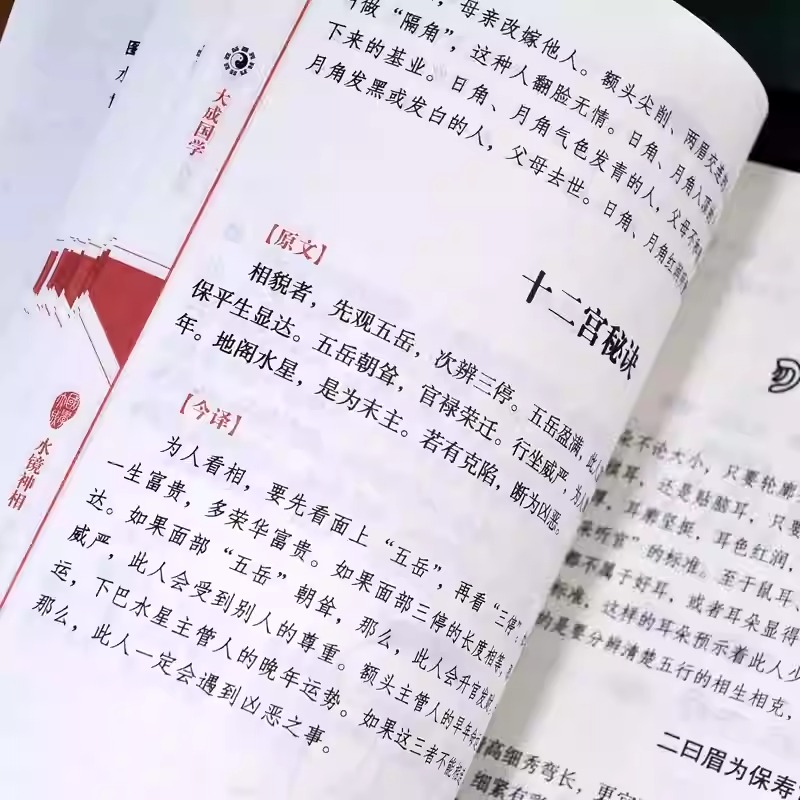 大成国学
水镜神相
，母亲改嫁他人。额头尖削、两眉交
做“隔角”，这种人翻脸无情。日角、月角
下来的基业。日角、月角气色发青的人，父母不
月角发黑或发白的人，父母去世。日角、月角红润
十二宫秘诀
【原文】
相貌者，先观五岳，次辨三停。五岳盈满，此人
保平生显达。五岳朝耸，官禄荣迁。行坐威严，为人
年。地阁水星，是为末主。若有克陷，断为凶恶。
【今译】
为人看相，要先看面上“五岳”，再看“三停”
一生富贵，多荣华富贵。如果面部三停的长度相等，
达。如果面部“五岳”朝耸，那么，此人会升官发财
威严，此人会受到别人的尊重。额头主管人的早年
运，下巴水星主管人的晚年运势。如果这三者不能
那么，此人一定会遇到凶恶之事。
不论大小，只要轮廓
耳，还是贴脑耳，只要
厚，耳廓坚挺，耳色红润，
采听官”的标准。至于鼠耳、
都不属于好耳，或者耳朵显得
标准，这样的耳朵预示着此人少
的是要分辨清楚五行的相生相克，
二曰眉为保寿
高细秀弯长，更宜